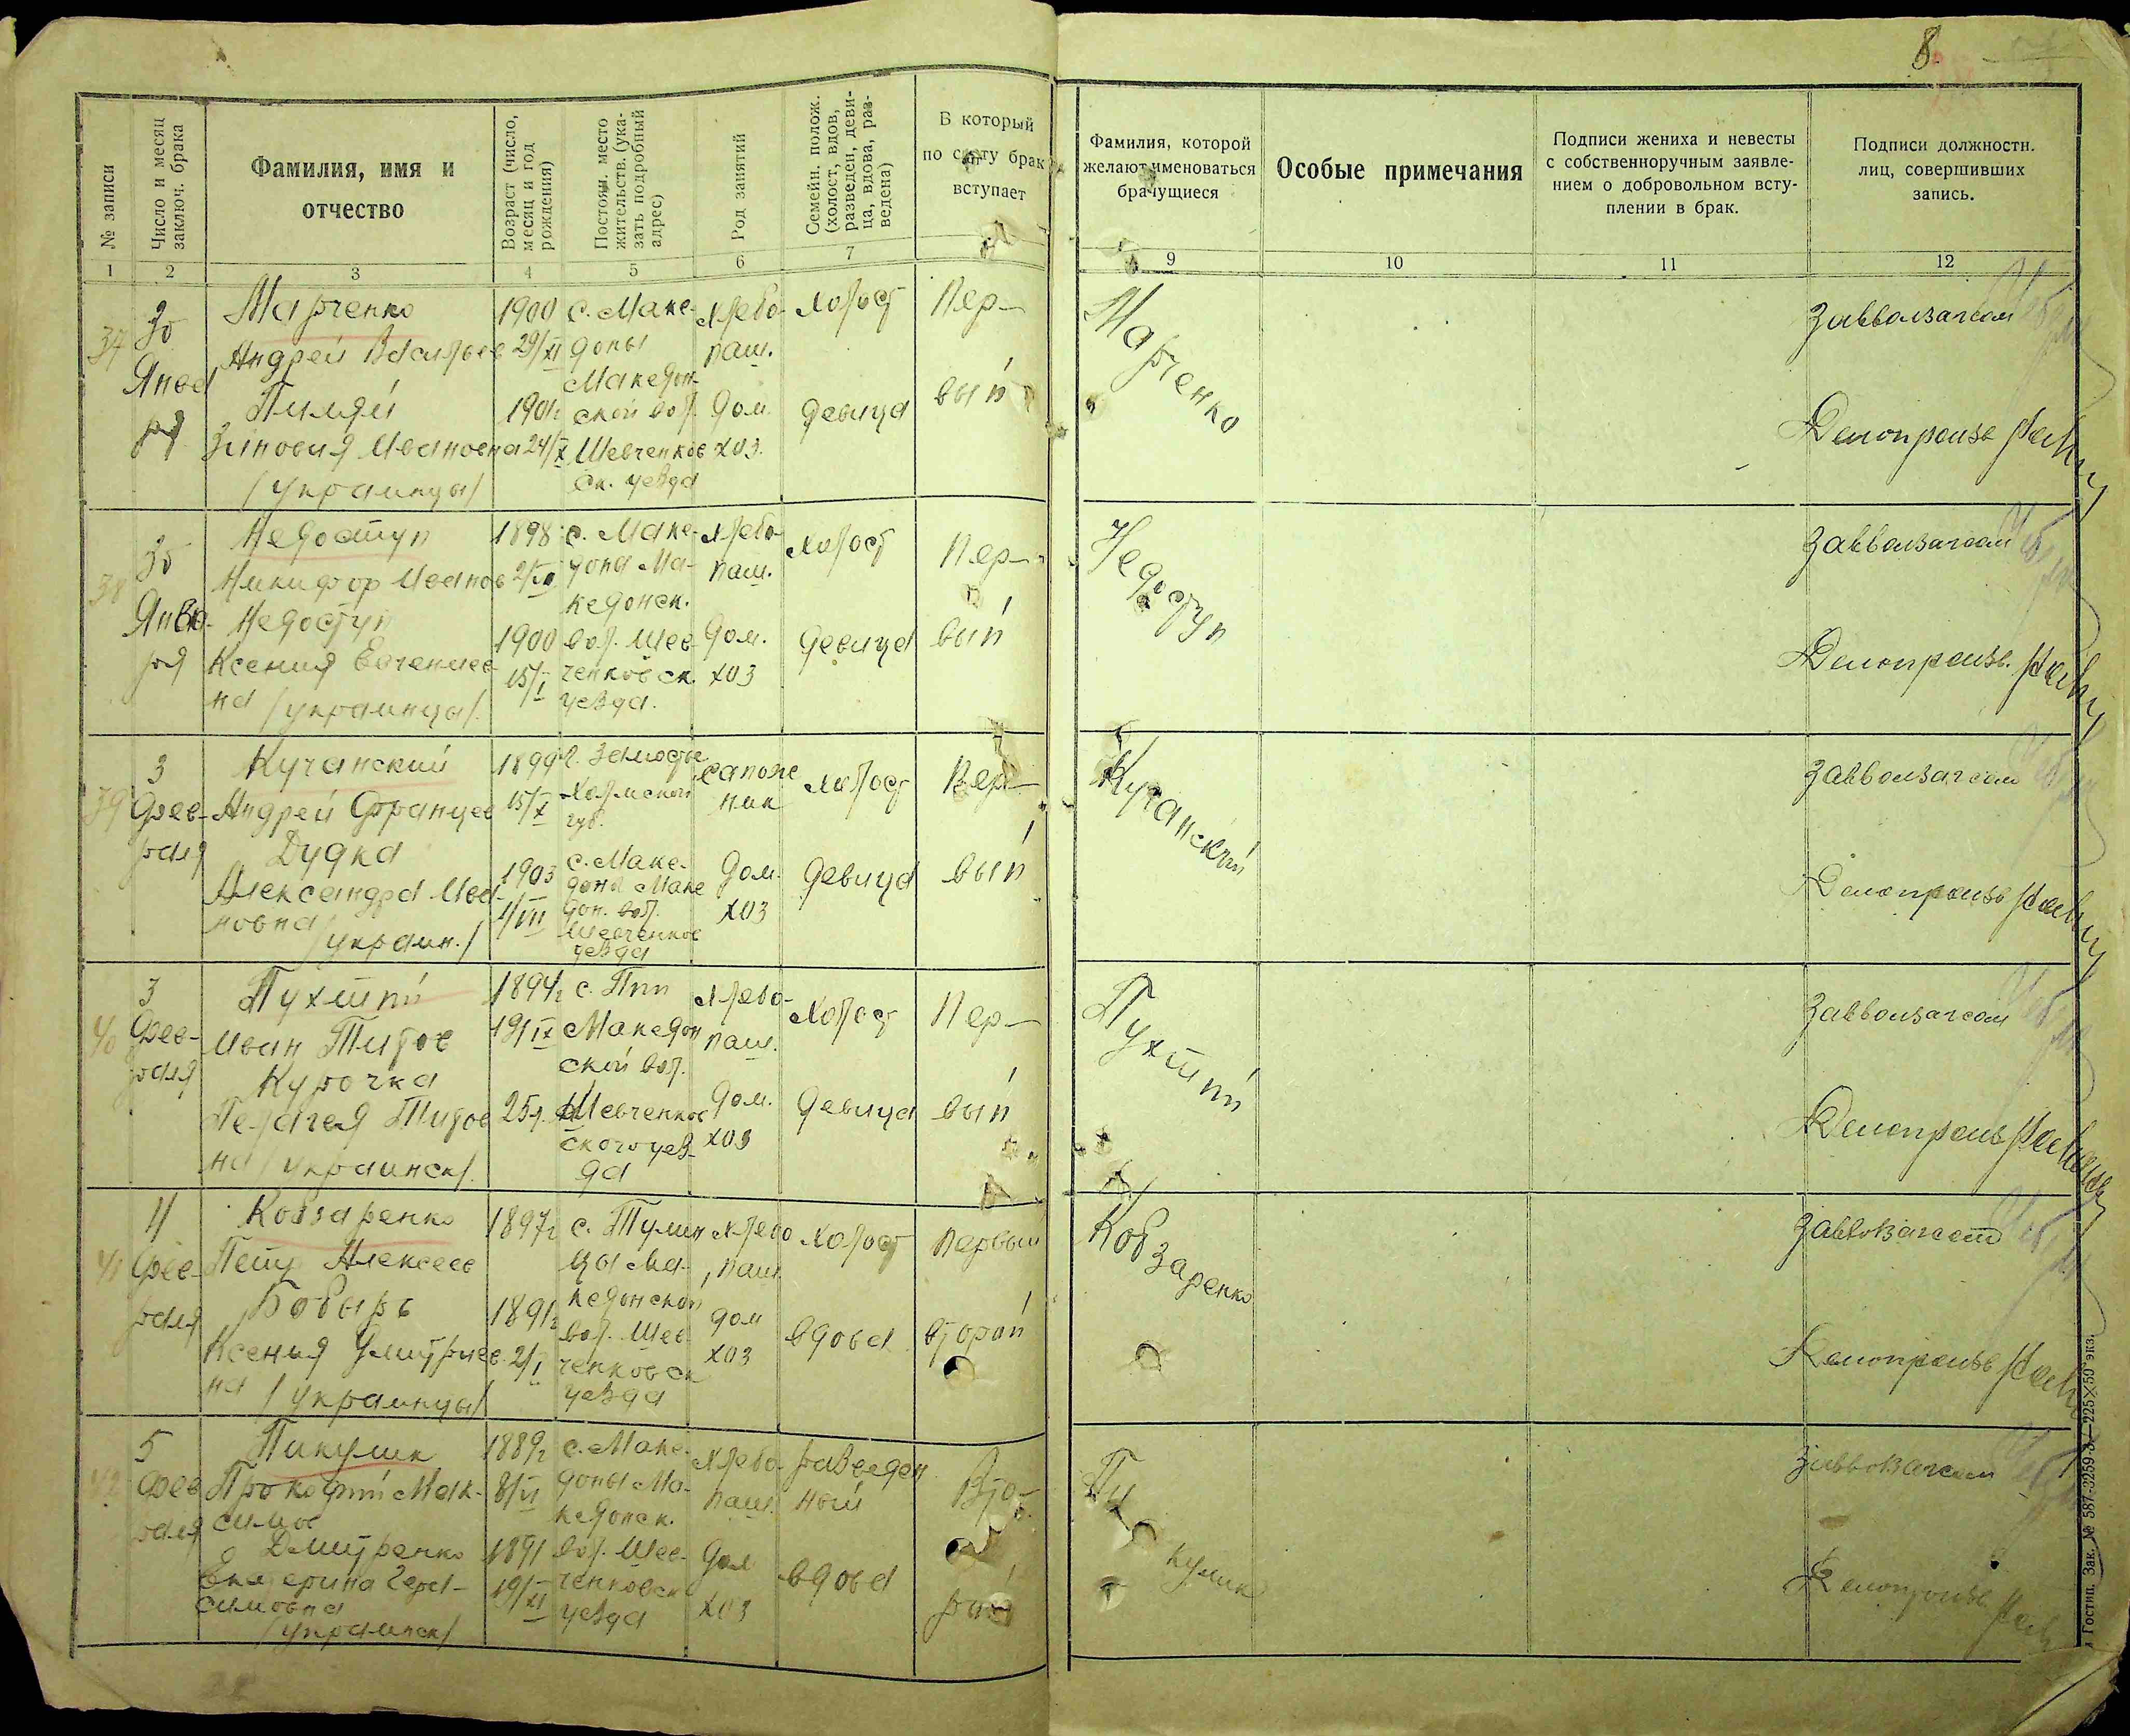 8.
№ записи
Число и месяц
заключ. брака
Фамилия, имя и
отчество
Возраст (число,
месяц и год
рождения)
Постоян. место
жительств. (ука-
зать подробный
адрес)
Род занятий
Семейн. полож.
(холост, вдов,
разведен, деви-
ца, вдова, раз-
ведена)
В который
по счету брак
вступает
Фамилия, которой
желают именоваться
брачущиеся
Особые примечания
Подписи жениха и невесты
с собственноручным заявле-
нием о добровольном всту-
плении в брак.
Подписи должностн.
лиц, совершивших
запись.
1 2 3 4 5 6 7 9 10 11 12
37
30
Января
Марченко
Андрей Васильев
Пиляй
Зиновия Ивановна
/украинцы/
1900
29/XI
1901г
24/X
с. Маке-
доны
Македон-
ской вол.
Шевченков
ск. уезда
хлебо-
паш.
дом.
хоз.
холост
девица
Пер-
вый
Марченко
Завволзагсом
Делопроизв
38
30
Янва-
ря
Недоступ
Никифор Иванов
Недоступ
Ксения Евгениев-
на /украинцы/.
1898
1900
15/I
с. Маке-
дона Ма-
кедонск.
вол. Шев-
ченковск.
уезда.
хлебо-
паш.
дом.
хоз
холост
девица
Пер-
вый
Недоступ
Завволзагсом
Делопроизв.
39
3
Фев-
раля
Кучанский
Андрей Францев
Дудка
Александра Ива-
новна
/украин./
1899
15/X
1903
1/VII
г. Замостье
Холмской
губ.
с. Маке-
дона Маке
дон. вол.
Шевченков
уезда
сапож
ник
дом.
хоз
холост
девица
Пер-
вый
Кучанский
Завволзагсом
Делопроизв
40
3
Фев-
раля
Пухтий
Иван Титов
Курочка
Пелагея Титов
на /украинск/.
1894г
19/IX
25л.
с. Пии
Македон
ской вол.
Шевченков
ского уез-
да
хлебо-
паш.
дом.
хоз
Холост
девица
Пер-
вый
Пухтий
Завволзагсом
Делопроизв
41
4
Фев-
раля
Кобзаренко
Петр Алексеев
Бобырь
Ксения Дмитриев-
на
/украинцы/
1897г
1891г
2/I
с. Тулин
цы Ма-
кедонской
вол. Шев-
ченковск
уезда
хлебо
паш
дом
хоз
холост
вдова
первый
второй
Кобзаренко
Завволзагсом
Делопроизв
42
5
Фев
раля
Пикулик
Прокофий Мак-
симов
Дмитренко
Екатерина Гера-
симовна
/украинск/
1889г
8/VI
1891
19/XI
с. Маке-
доны Ма-
кедонск.
вол. Шев-
ченковск
уезда
хлебо-
паш.
дом
хоз
разведен
ный
вдова
Вто-
рой
Пикулик
Завволзагсом
Делопроизв
Гостип. Зак. № 587-3259-3-225×50 экз.